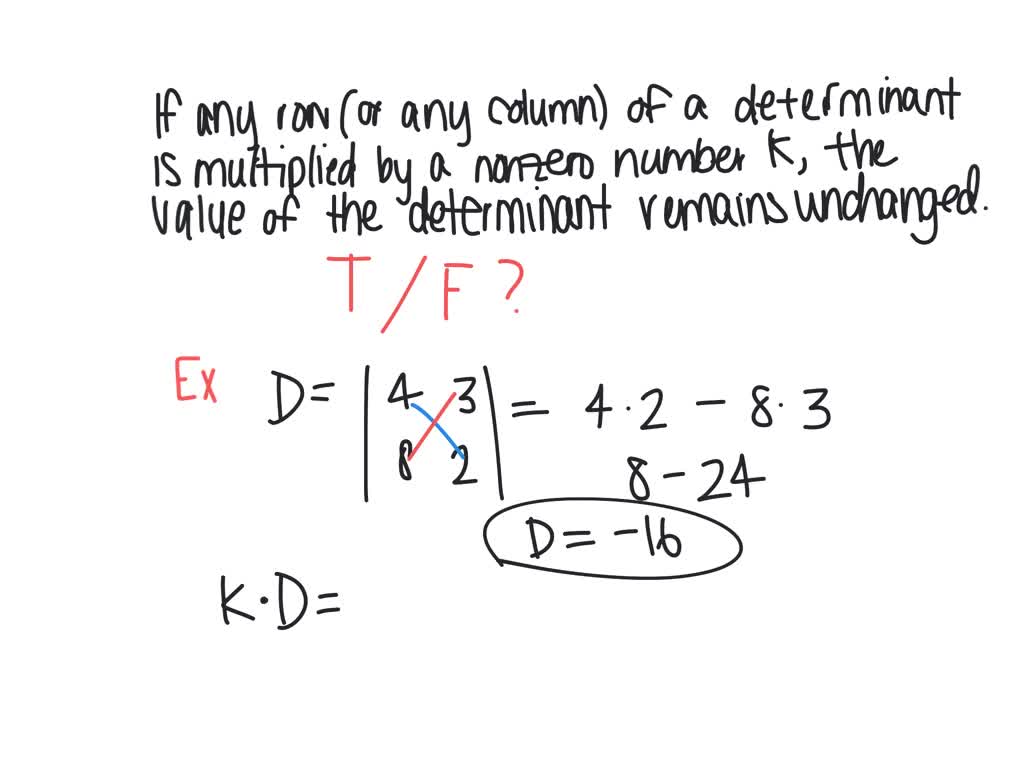 If any row (or any column) of a determinant
is multiplied by a nonzero number K, the
value of the determinant remains unchanged.
T/F?
Ex D = | 4 3 | = 4·2 - 8·3
| 8 2 | 8 - 24
D = -16
K·D =